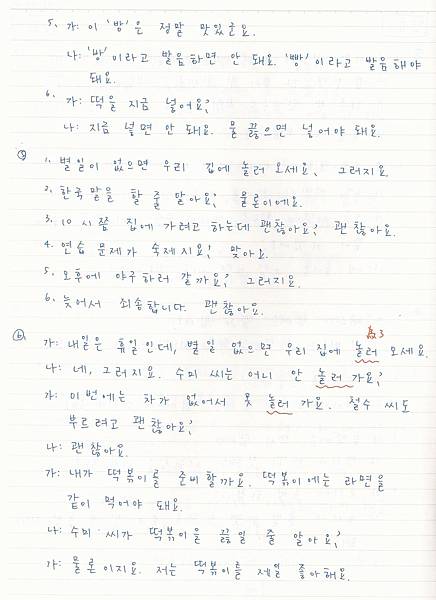 5. 가: 이 '방'은 정말 맛있군요.
나: '방'이라고 발음하면 안 돼요. '빵'이라고 발음해야
돼요.
6. 가: 떡을 지금 넣어요?
나: 지금 넣면 안 돼요. 물 끓으면 넣어야 돼요.
⑤ 1. 별일이 없으면 우리 집에 놀러 오세요. 그러지요.
2. 한국말을 할 줄 알아요? 물론이에요.
3. 10시쯤 집에 가려고 하는데 괜찮아요? 괜찮아요.
4. 연습 문제가 숙제지요? 맞아요.
5. 오후에 야구하러 갈까요? 그러지요.
6. 늦어서 죄송합니다. 괜찮아요.
⑥ 가: 내일은 휴일인데, 별일 없으면 우리 집에 놀러 오세요.
나: 네, 그러지요. 수미 씨는 어니 안 놀러 가요?
가: 이번에는 차가 없어서 못 놀러 가요. 철수 씨도
부르려고 괜찮아요?
나: 괜찮아요.
가: 내가 떡볶이를 준비할까요. 떡볶이에는 라면을
같이 먹어야 돼요.
나: 수미 씨가 떡볶이을 끓일 줄 알아요?
가: 물론이지요. 저는 떡볶이를 제일 좋아해요.